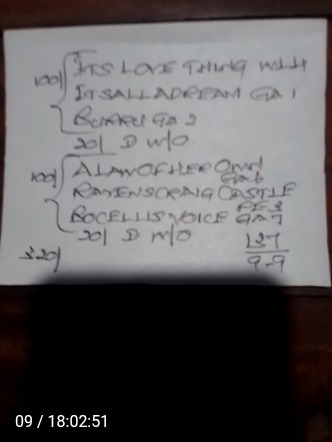 100/ ITS LOVE THING WLH
ITSALLADREAM GA 1
BURRU GA 2
20/ D W/O
100/ A LAW OF HER OWN
GA 6
RAVENSCRAIG CASTLE
PE 3
BOCELLIS VOICE GA 7
20/ D W/O
320/
137
9-9
09 / 18:02:51